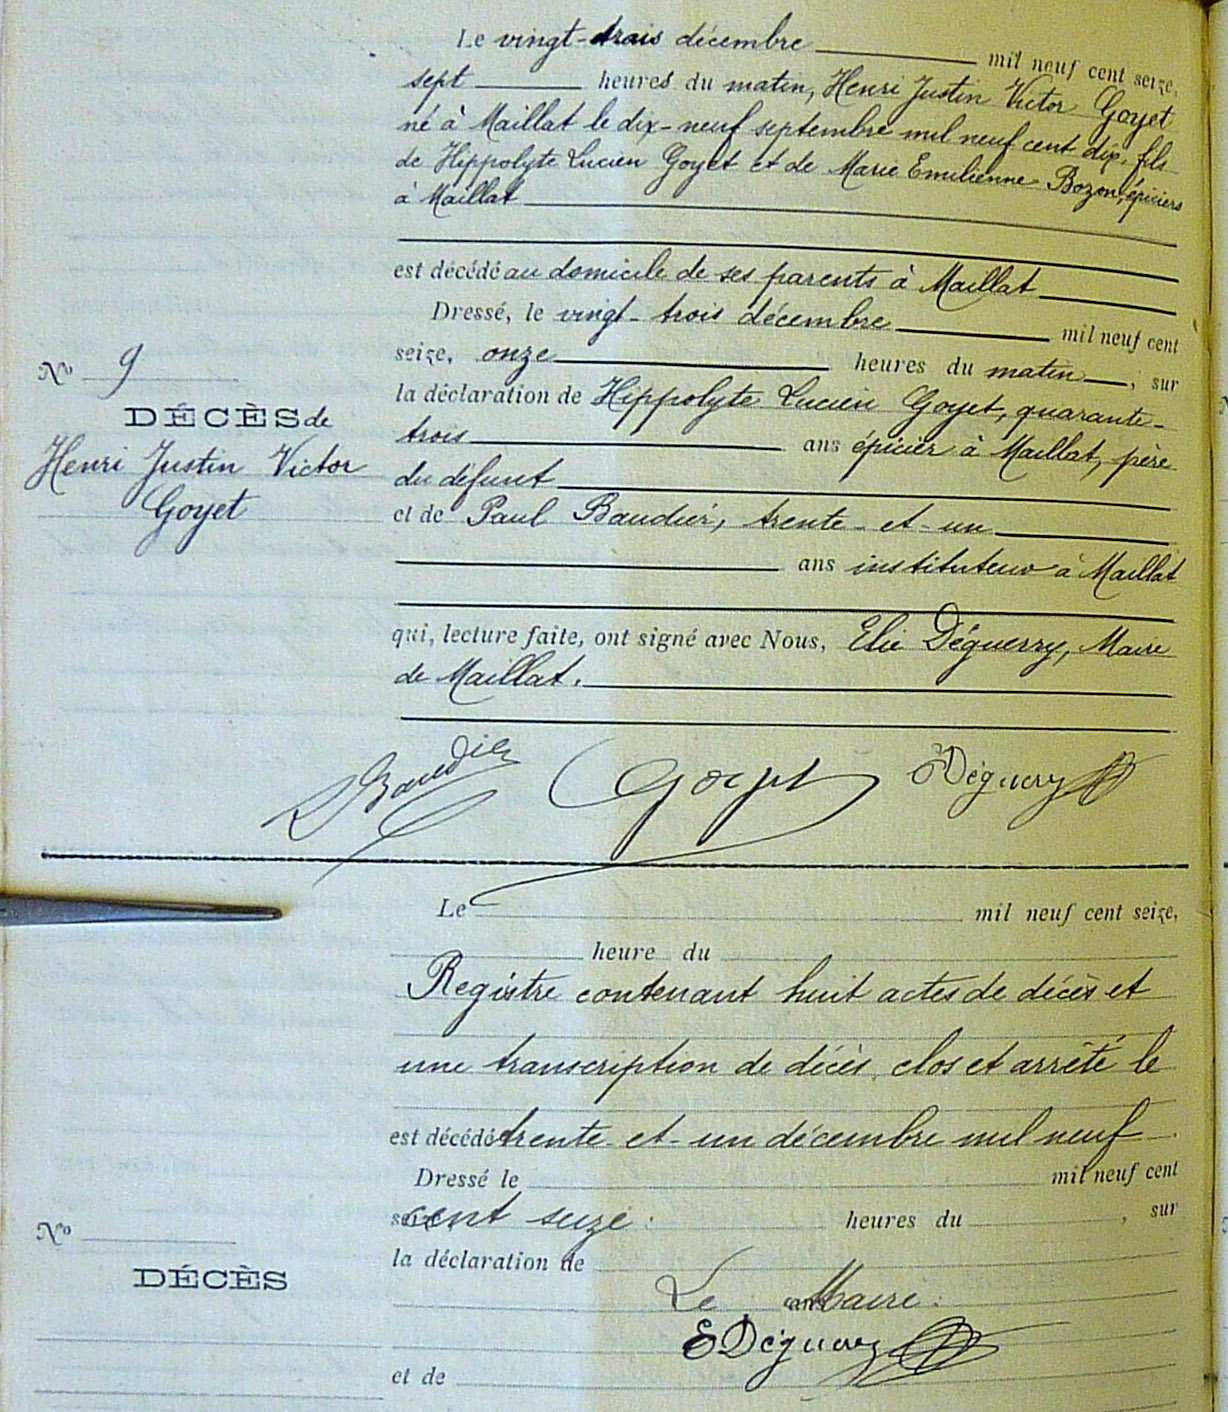 Le vingt-trois décembre mil neuf cent seize,
sept heures du matin, Henri Justin Victor Goyet
né à Maillat le dix-neuf septembre mil neuf cent dix, fils
de Hippolyte Lucien Goyet et de Marie Emilienne Bozon, épiciers
à Maillat
est décédé au domicile de ses parents à Maillat
Dressé, le vingt-trois décembre mil neuf cent
seize, onze heures du matin, sur
la déclaration de Hippolyte Lucien Goyet, quarante-
trois ans épicier à Maillat, père
du défunt
et de Paul Baudier, trente-et-un
ans instituteur à Maillat
qui, lecture faite, ont signé avec Nous, Elie Déguerry, Maire
de Maillat.
No 9
DÉCÈS de
Henri Justin Victor
Goyet
PBaudier Goyet EDéguerry
Le mil neuf cent seize,
heure du
Registre contenant huit actes de décès et
une transcription de décès, clos et arrêté le
est décédé trente-et-un décembre mil neuf
Dressé le mil neuf cent
seize cent seize. heures du , sur
la déclaration de
Le Maire:
ans
EDéguerry
et de
No
DÉCÈS